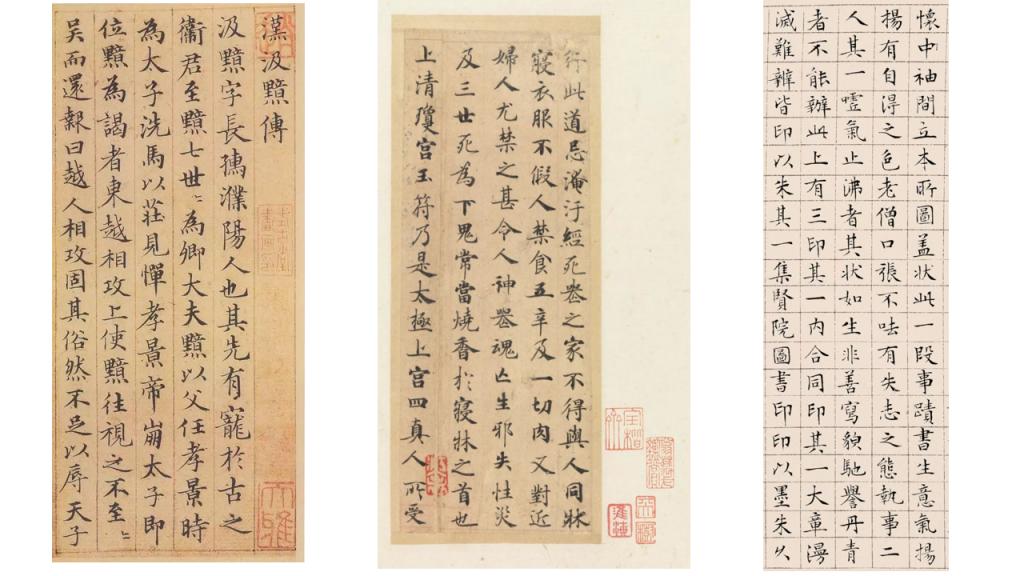 漢汲黯傳
汲黯字長孺濮陽人也其先有寵於古之
衛君至黯七世〻為卿大夫黯以父任孝景時
為太子洗馬以莊見憚孝景帝崩太子即
位黯為謁者東越相攻上使黯往視之不至〻
吳而還報曰越人相攻固其俗然不足以辱天子
行此道忌淹汙經死喪之家不得與人同牀
寢衣服不假人禁食五辛及一切肉又對近
婦人尤禁之甚令人神喪魂亡生邪失性災
及三世死為下鬼常當燒香於寢牀之首也
上清瓊宮玉符乃是太極上宮四真人所受
懷中袖間立本所圖盖狀此一段事蹟書生意氣揚
揚有自得之色老僧口張不呿有失志之態執事二
人其一噓氣止沸者其狀如生非善寫貌馳譽丹青
者不能辦此上有三印其一内合同印其一大章漫
滅難辨皆印以朱其一集賢院圖書印印以墨朱以